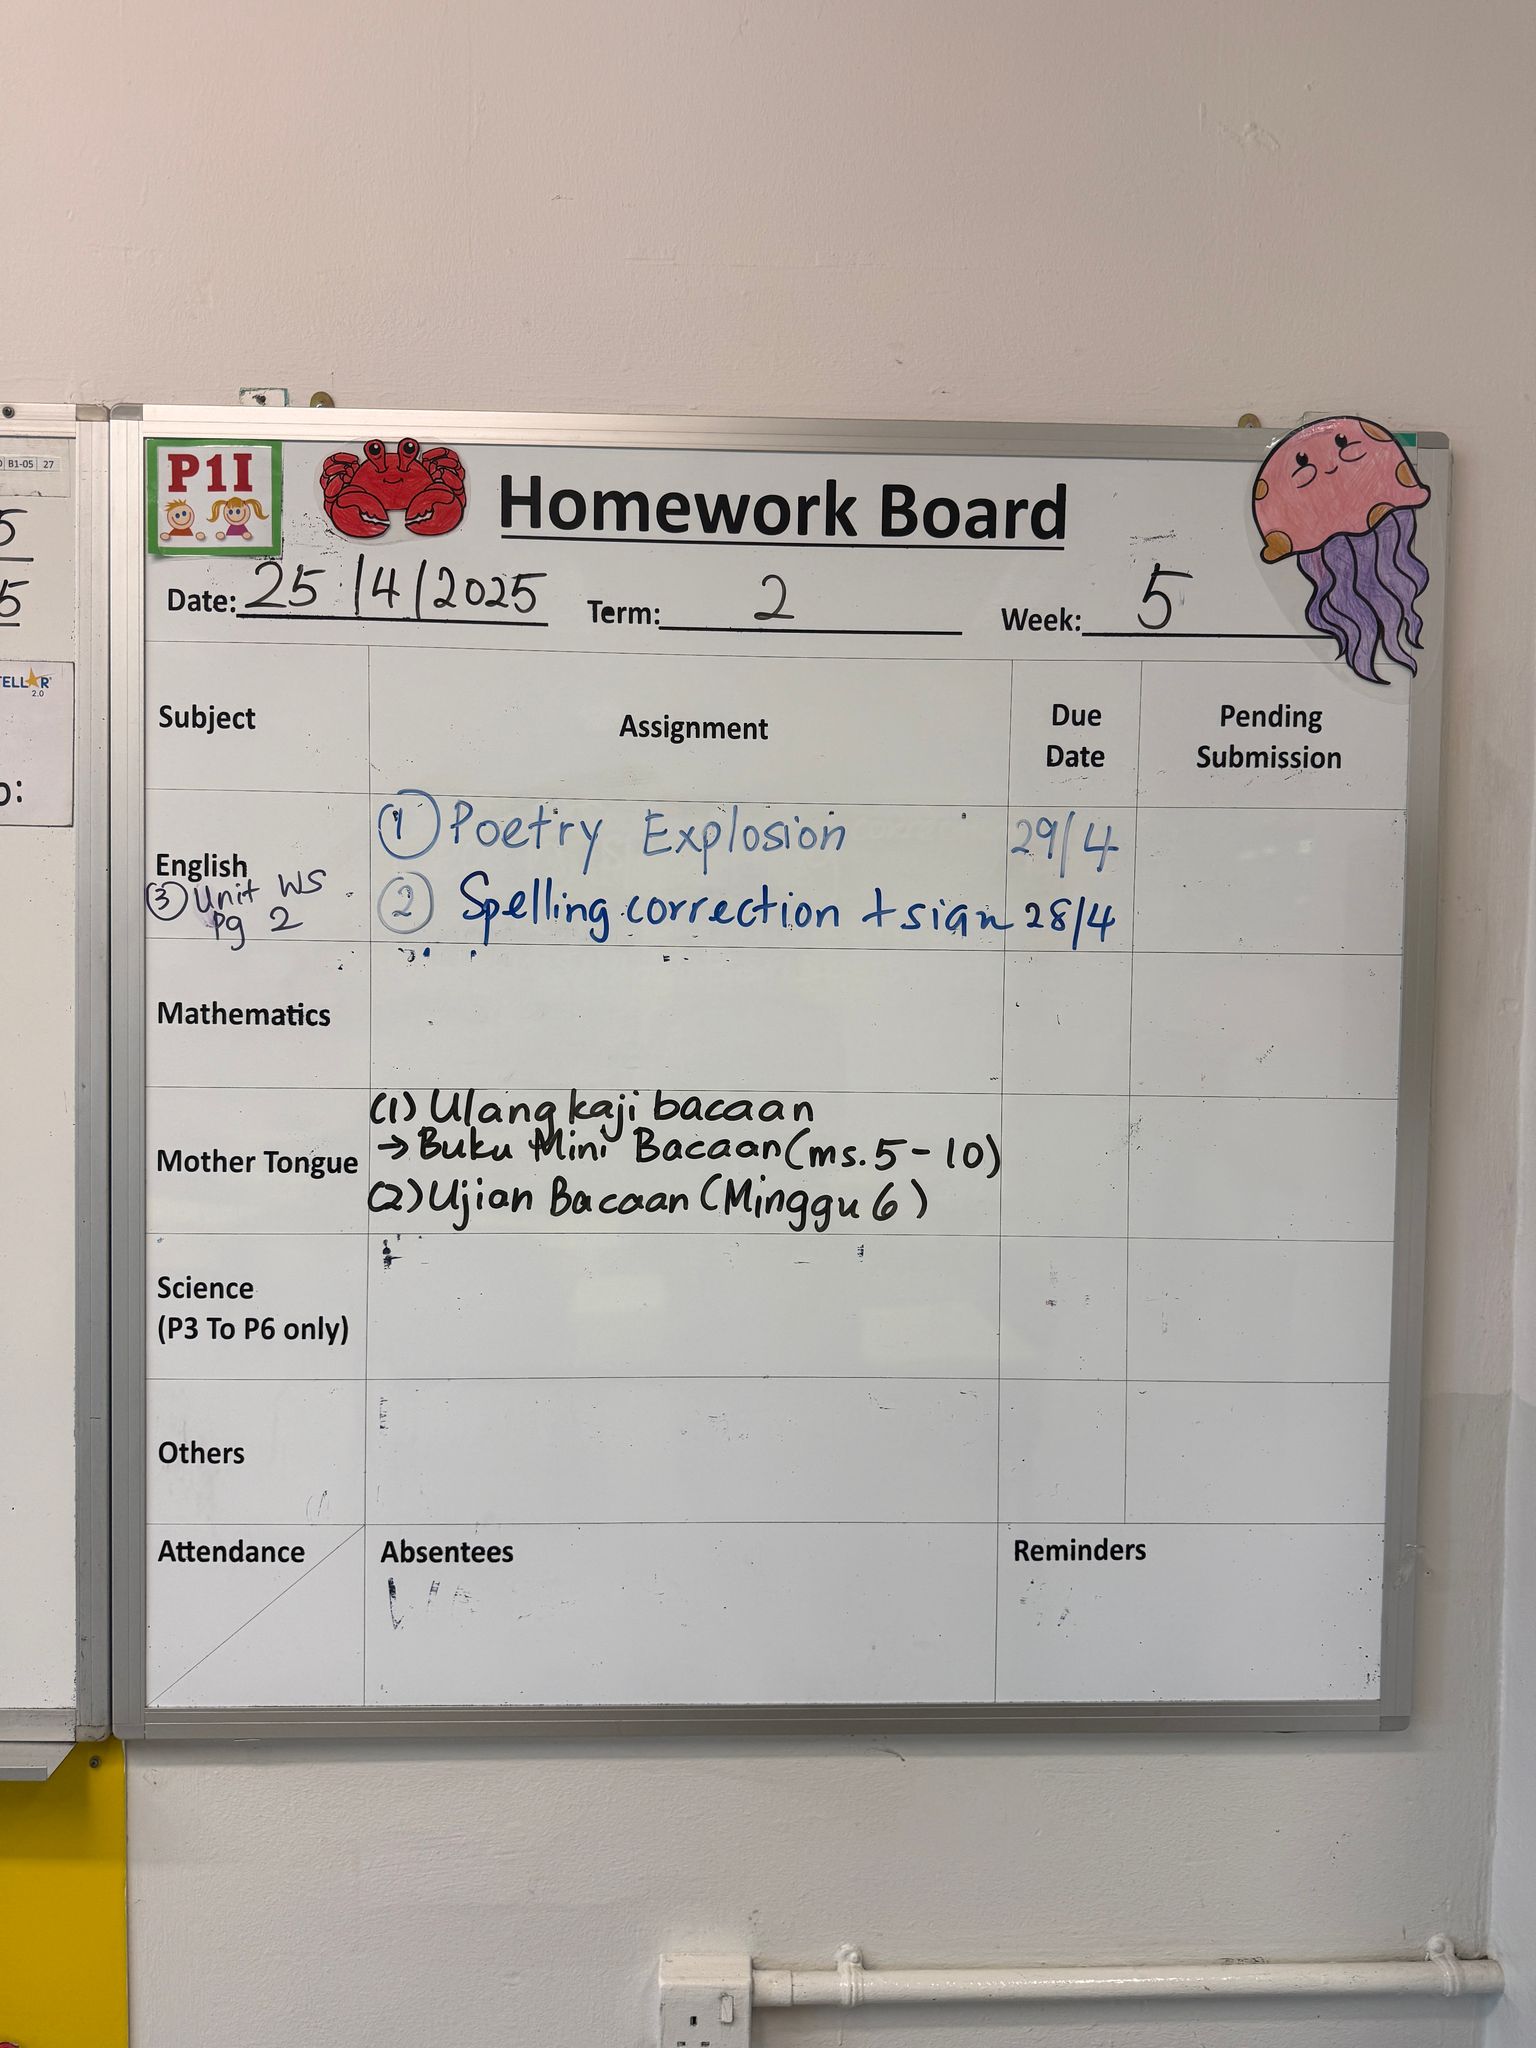 B1-05 27
5
5
TELLAR
2.0
P1I
Homework Board
Date: 25/4/2025 Term: 2 Week: 5
Subject Assignment Due Date Pending Submission
English ① Poetry Explosion 29/4
③ Unit WS pg 2 ② Spelling correction + sign 28/4
Mathematics
Mother Tongue (1) Ulangkaji bacaan
→ Buku Mini Bacaan (ms. 5 - 10)
(2) Ujian Bacaan (Minggu 6)
Science
(P3 To P6 only)
Others
Attendance Absentees Reminders